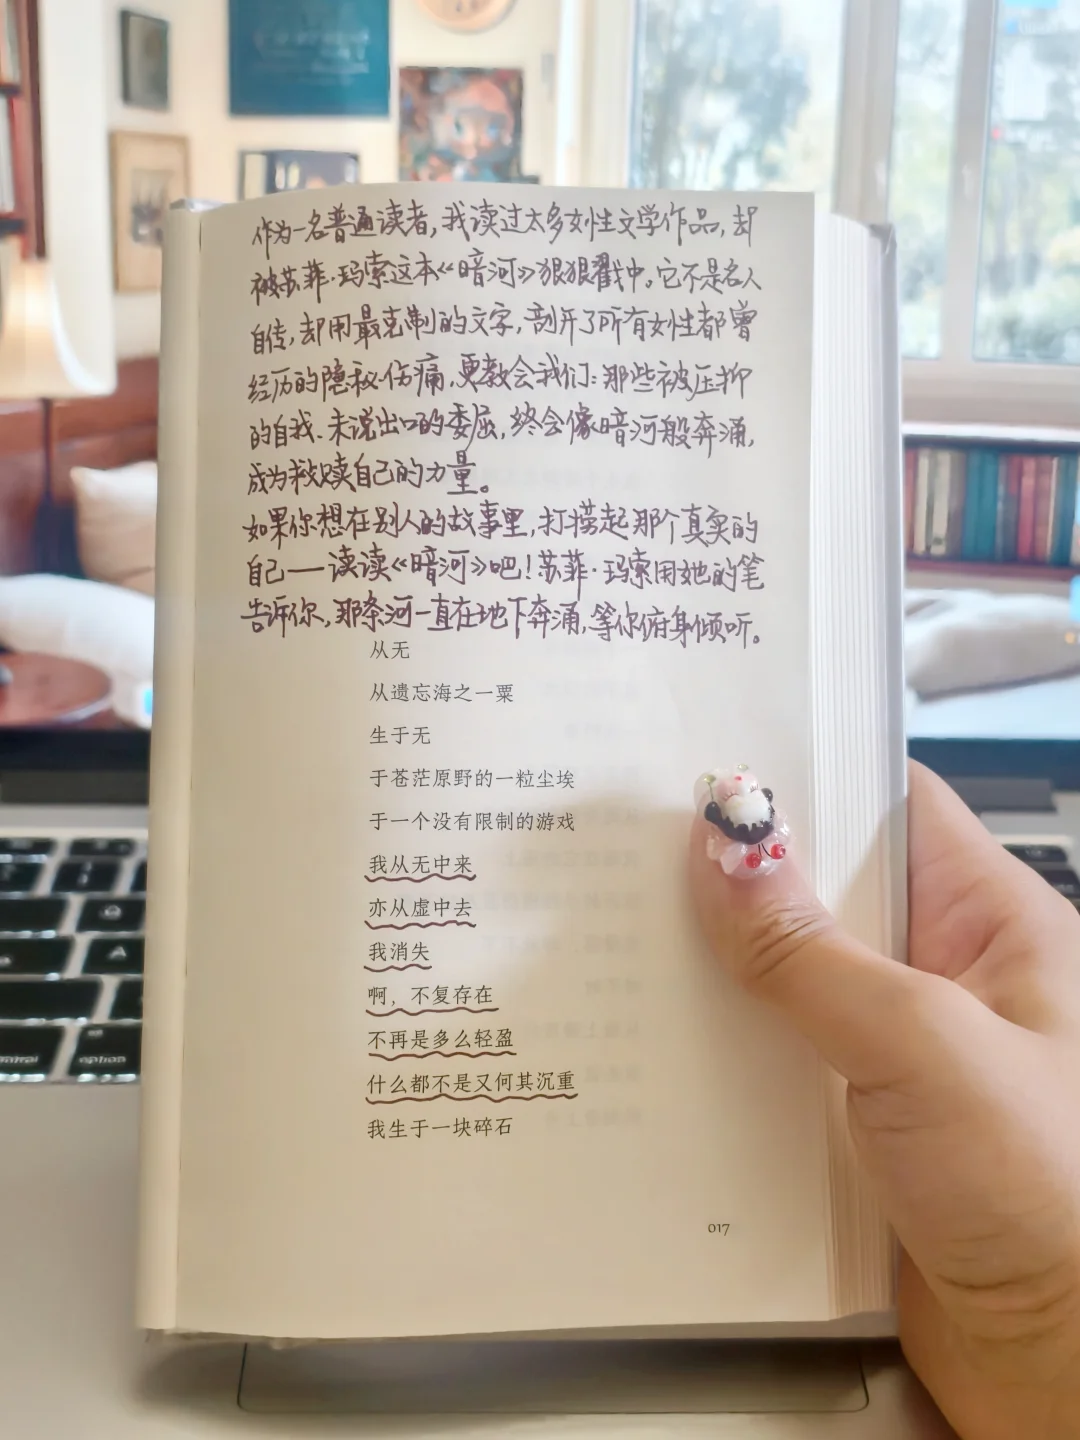 作为一名普通读者,我读过太多女性文学作品,却
被苏菲·玛索这本《暗河》狠狠戳中。它不是名人
自传,却用最克制的文字,剖开了所有女性都曾
经历的隐秘伤痛,更教会我们:那些被压抑
的自我、未说出口的委屈,终会像暗河般奔涌,
成为救赎自己的力量。
如果你想在别人的故事里,打捞起那个真实的
自己——读读《暗河》吧!苏菲·玛索用她的笔
告诉你,那条河一直在地下奔涌,等你俯身倾听。
从无
从遗忘海之一粟
生于无
于苍茫原野的一粒尘埃
于一个没有限制的游戏
我从无中来
亦从虚中去
我消失
啊,不复存在
不再是多么轻盈
什么都不是又何其沉重
我生于一块碎石
017
option